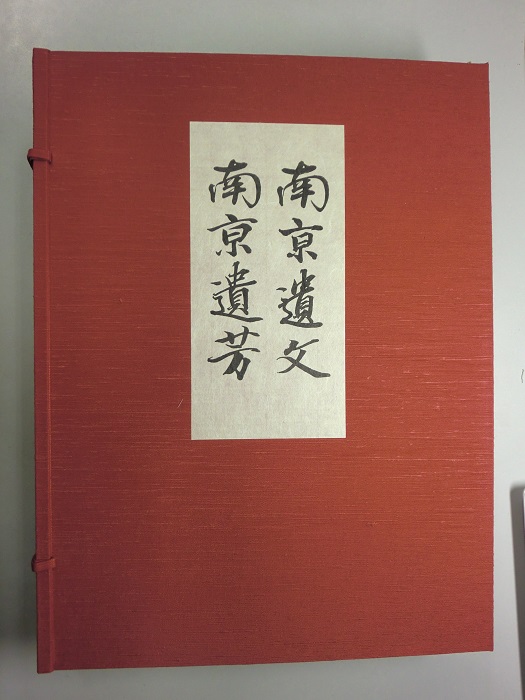 南京遺文
南京遺芳